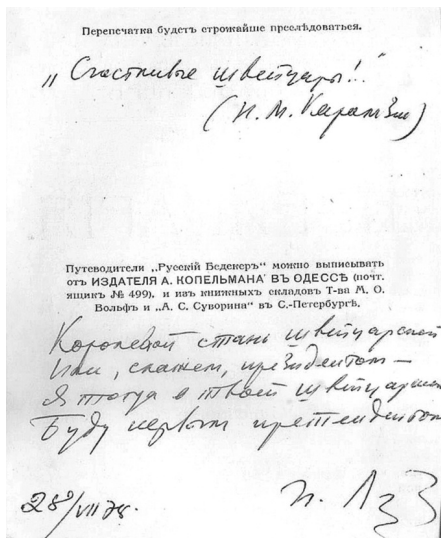 Перепечатка будетъ строжайше преслѣдоваться.
„Счастливые швейцары!..“
(Н. М. Карамзин)
Путеводители „Русскій Бедекеръ“ можно выписывать
отъ ИЗДАТЕЛЯ А. КОПЕЛЬМАНА ВЪ ОДЕССѢ (почт.
ящикъ № 499), и изъ книжныхъ складовъ Т-ва М. О.
Вольфъ и „А. С. Суворина“ въ С.-Петербургѣ.
Королевой стань швейцарской
Или, скажем, президентом —
Я тогда в твоей швейцарской
Буду первым претендентом
28/VII 78.